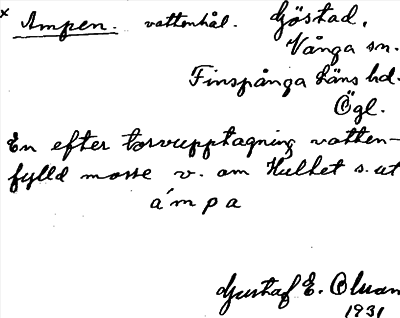 x Ampen. vattenhål. Göstad,
Vånga sn.
Finspånga läns hd.
Ögl.
En efter torvupptagning vatten-
fylld mosse v. om Kulhet s. ut
ámpa
Gustaf E. Olsson
1931